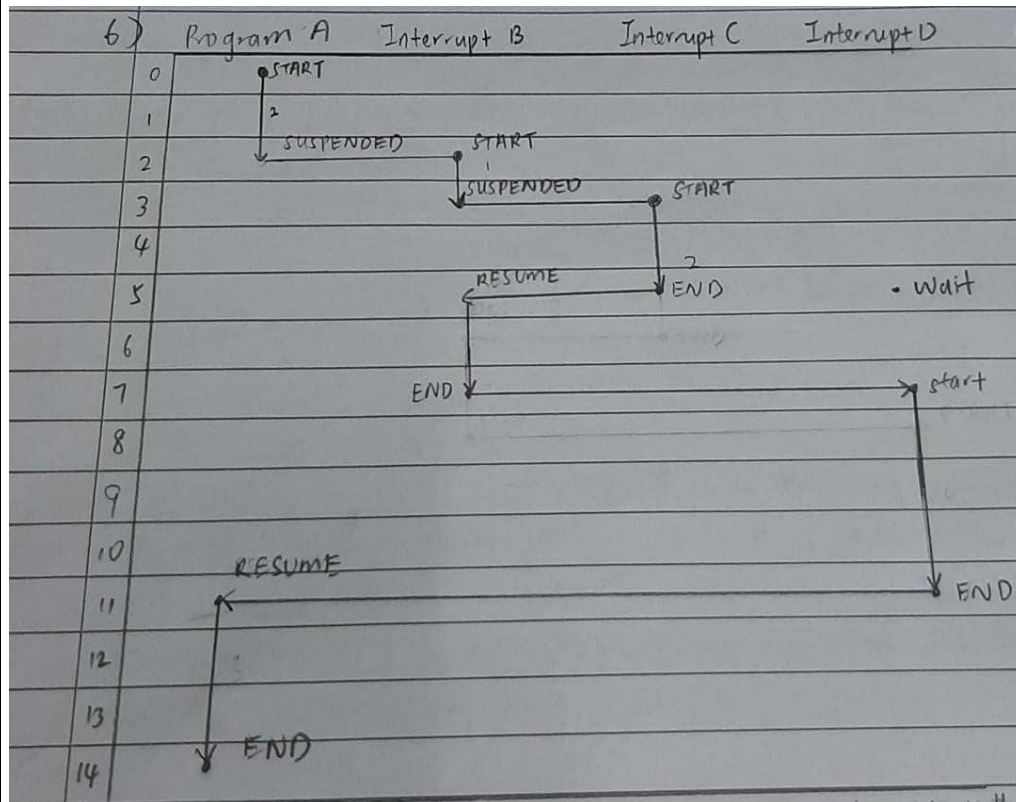 6) Program A Interrupt B Interrupt C Interrupt D
0 START
1 2
2 SUSPENDED START
1
SUSPENDED START
3
4
2
5 RESUME END . Wait
6
7 END start
8
9
10
RESUME
11 END
12
13
END
14